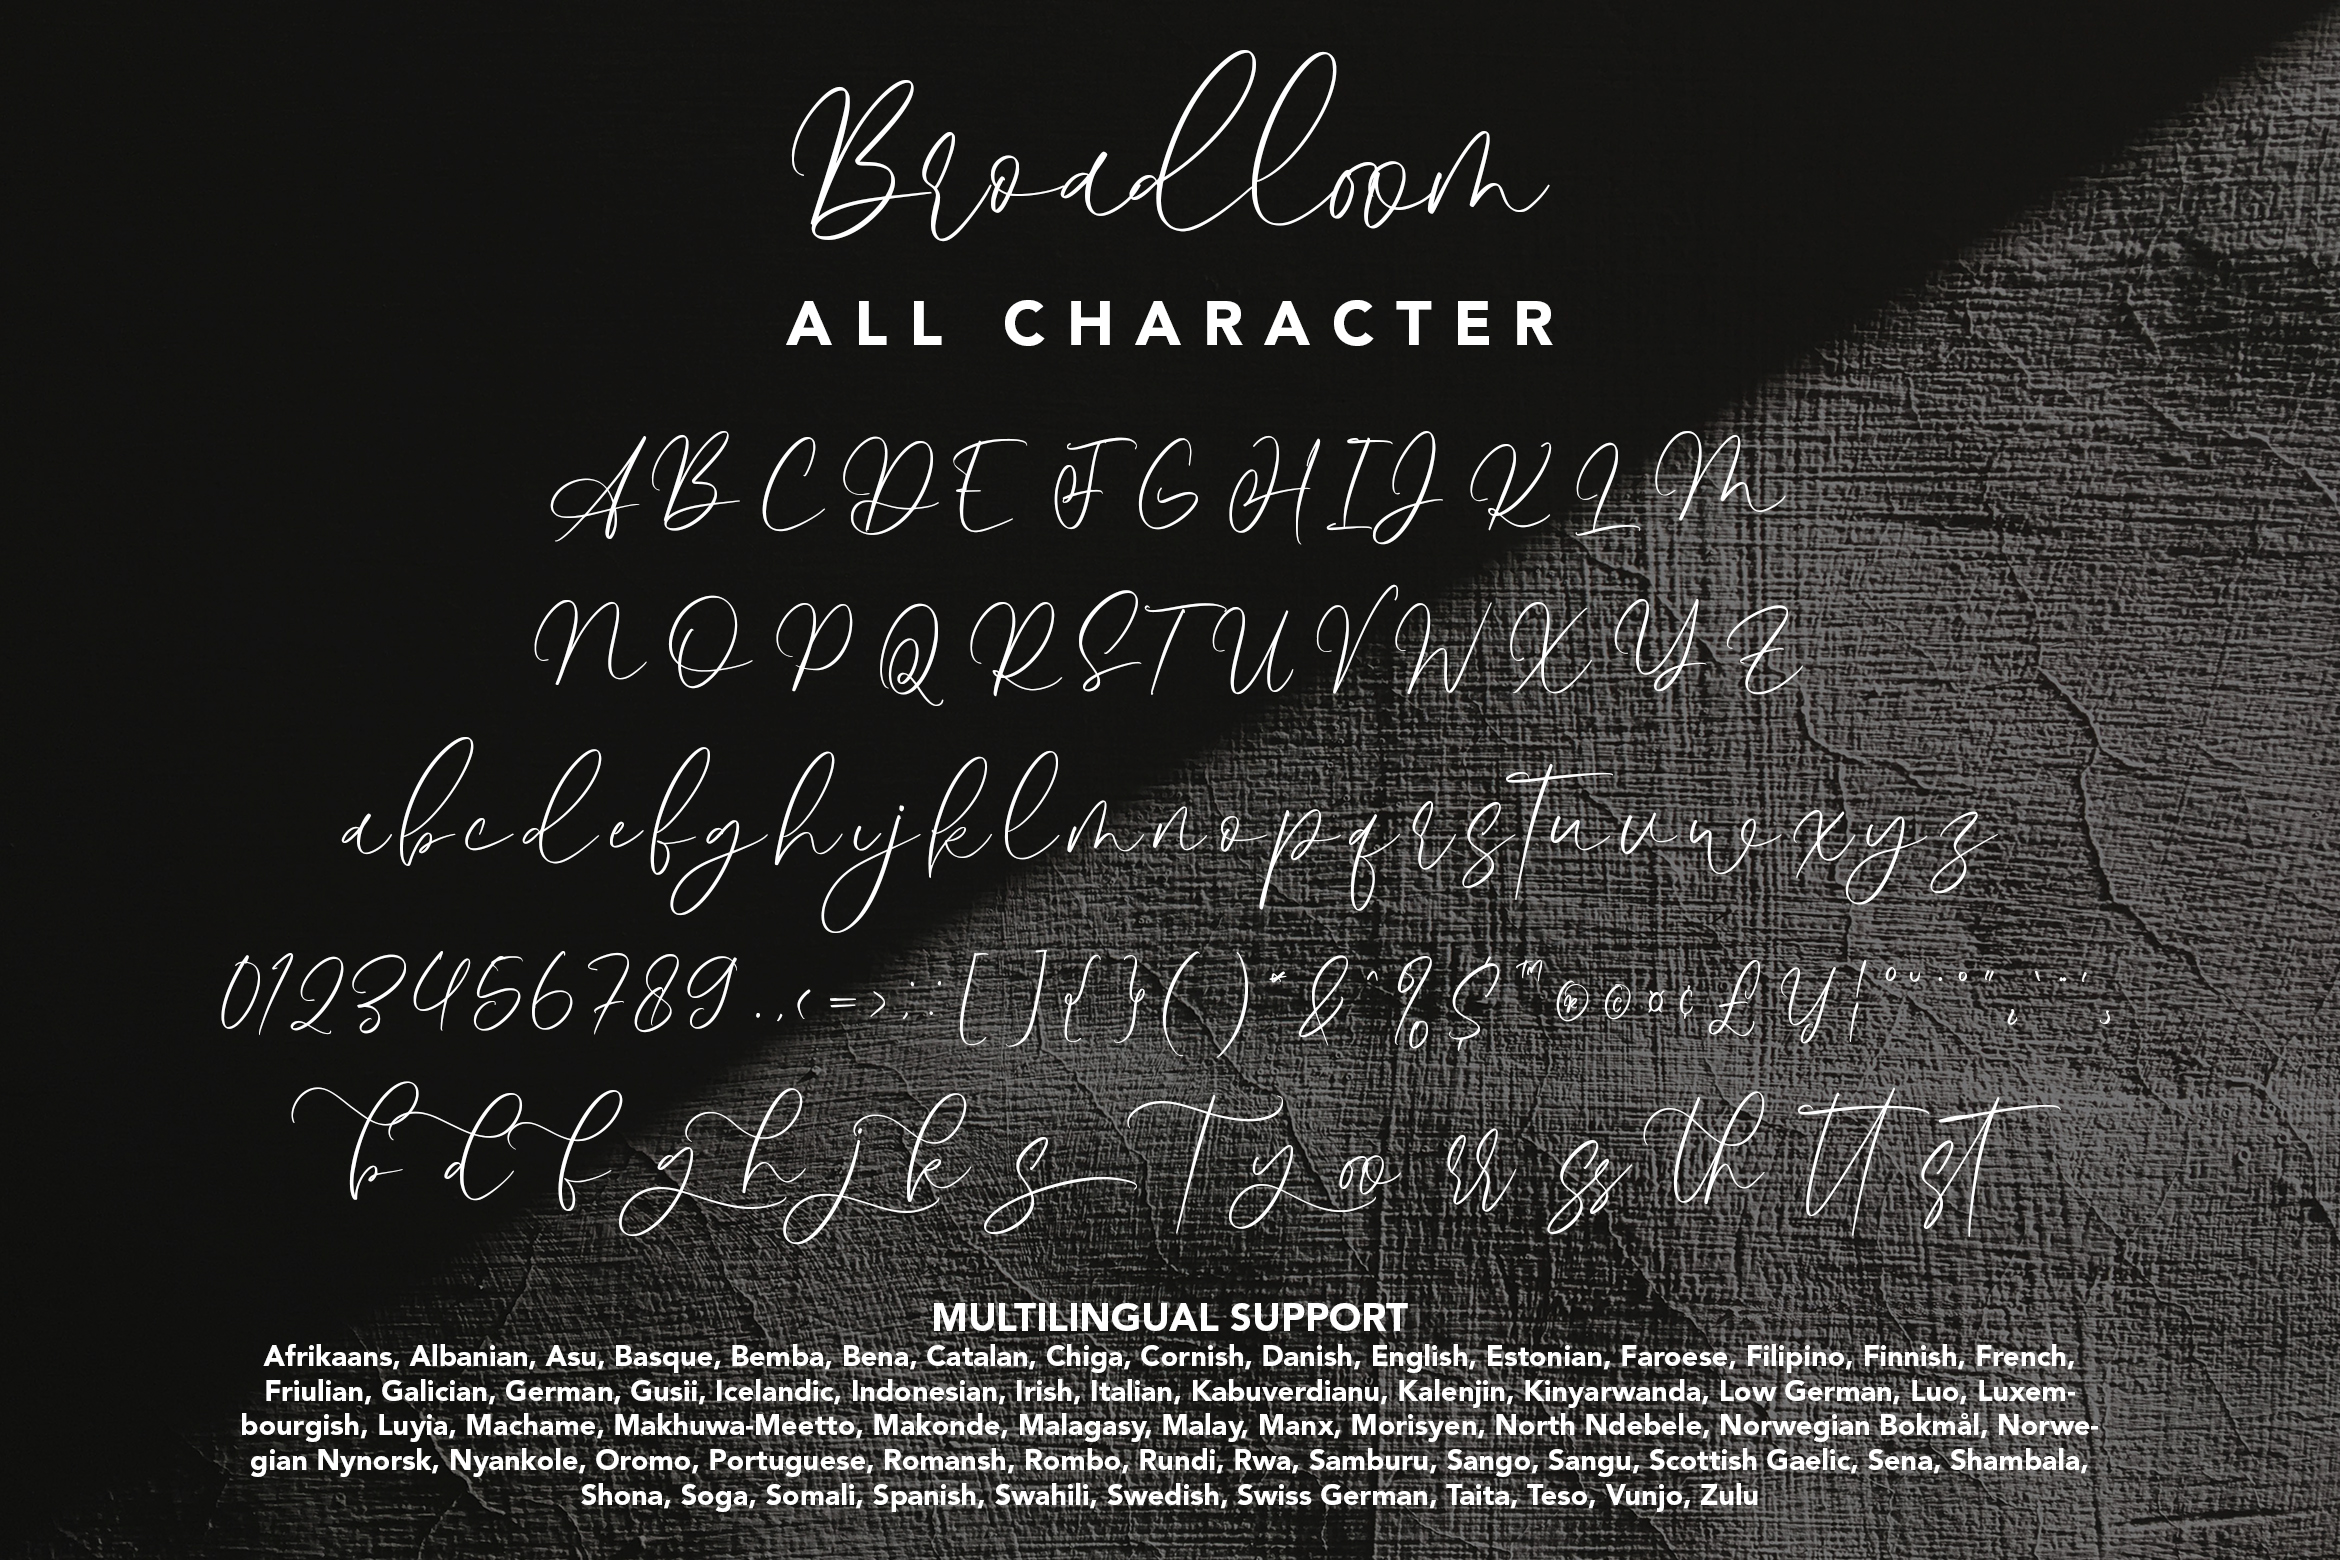 Broadloom
ALL CHARACTER
A B C D E F G H I J K L M
N O P Q R S T U V W X Y Z
a b c d e f g h i j k l m n o p q r s t u v w x y z
0 1 2 3 4 5 6 7 8 9 . , < = > ; : [ ] { } ( ) * & ^ % $ ™ ® © ¤ ¢ £ ¥ |
b d f g h j k s T y oo rr ss th tt st
MULTILINGUAL SUPPORT
Afrikaans, Albanian, Asu, Basque, Bemba, Bena, Catalan, Chiga, Cornish, Danish, English, Estonian, Faroese, Filipino, Finnish, French,
Friulian, Galician, German, Gusii, Icelandic, Indonesian, Irish, Italian, Kabuverdianu, Kalenjin, Kinyarwanda, Low German, Luo, Luxem-
bourgish, Luyia, Machame, Makhuwa-Meetto, Makonde, Malagasy, Malay, Manx, Morisyen, North Ndebele, Norwegian Bokmål, Norwe-
gian Nynorsk, Nyankole, Oromo, Portuguese, Romansh, Rombo, Rundi, Rwa, Samburu, Sango, Sangu, Scottish Gaelic, Sena, Shambala,
Shona, Soga, Somali, Spanish, Swahili, Swedish, Swiss German, Taita, Teso, Vunjo, Zulu